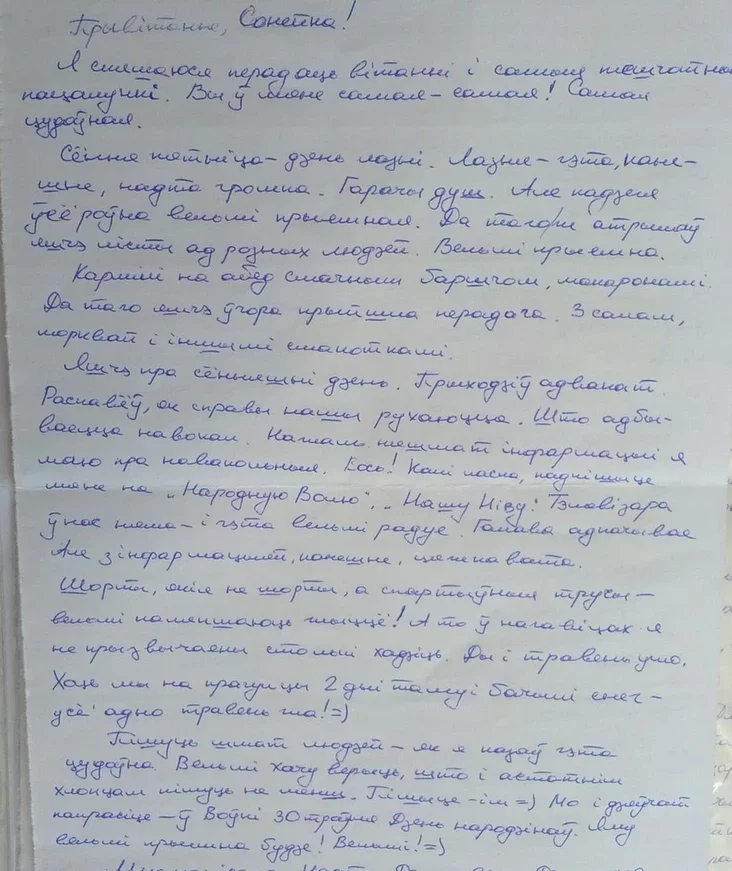 Прывітанне, Санечка!
Я спяшаюся перадаць вітанні і самыя пяшчотныя
пацалункі. Вы ў мяне самая-самая! Самая
цудоўная.
Сёння пятніца - дзень лазні. Лазня - гэта, кане-
шне, надта громка. Гарачы душ. Але падзея
ўсё роўна вельмі прыемная. Да таго ж атрымаў
яшчэ лісты ад розных людзей. Вельмі прыемна.
Кармілі на абед смачным баршчом, макаронамі.
Да таго яшчэ ўчора прыйшла перадача. З салам,
морквай і іншымі смакоткамі.
Яшчэ пра сённяшні дзень. Прыходзіў адвакат.
Распавёў, як справы нашы рухаюцца. Што адбы-
ваецца навокал. Нажаль няшмат інфармацыі я
маю пра навакольныя. Вось! Калі ласка, падпішыце
мяне на „Народную Волю", „Нашу Ніву". Тэлевізара
ў нас няма - і гэта вельмі радуе. Галава адпачывае
Але з інфармацыяй, конешне, цяжкавата.
Шорты, якія не шорты, а спартыўныя трусы -
вельмі паляпшаюць жыццё! А то ў нагавіцах я
не прызвычаены столькі хадзіць. Ды і травень ужо.
Хаць мы на прагулцы 2 дні таму і бачылі снег -
усё адно травень жа! =)
Пішуць шмат людзей - як я казаў гэта
цудоўна. Вельмі хачу верыць, што і астатнім
хлопцам пішуць не менш. Пішыце - ім =) Мо і дзяўчат
папрасіце - ў Воўкі 30 траўня Дзень народзінаў. Яму
вельмі прыемна будзе! Вельмі! =)